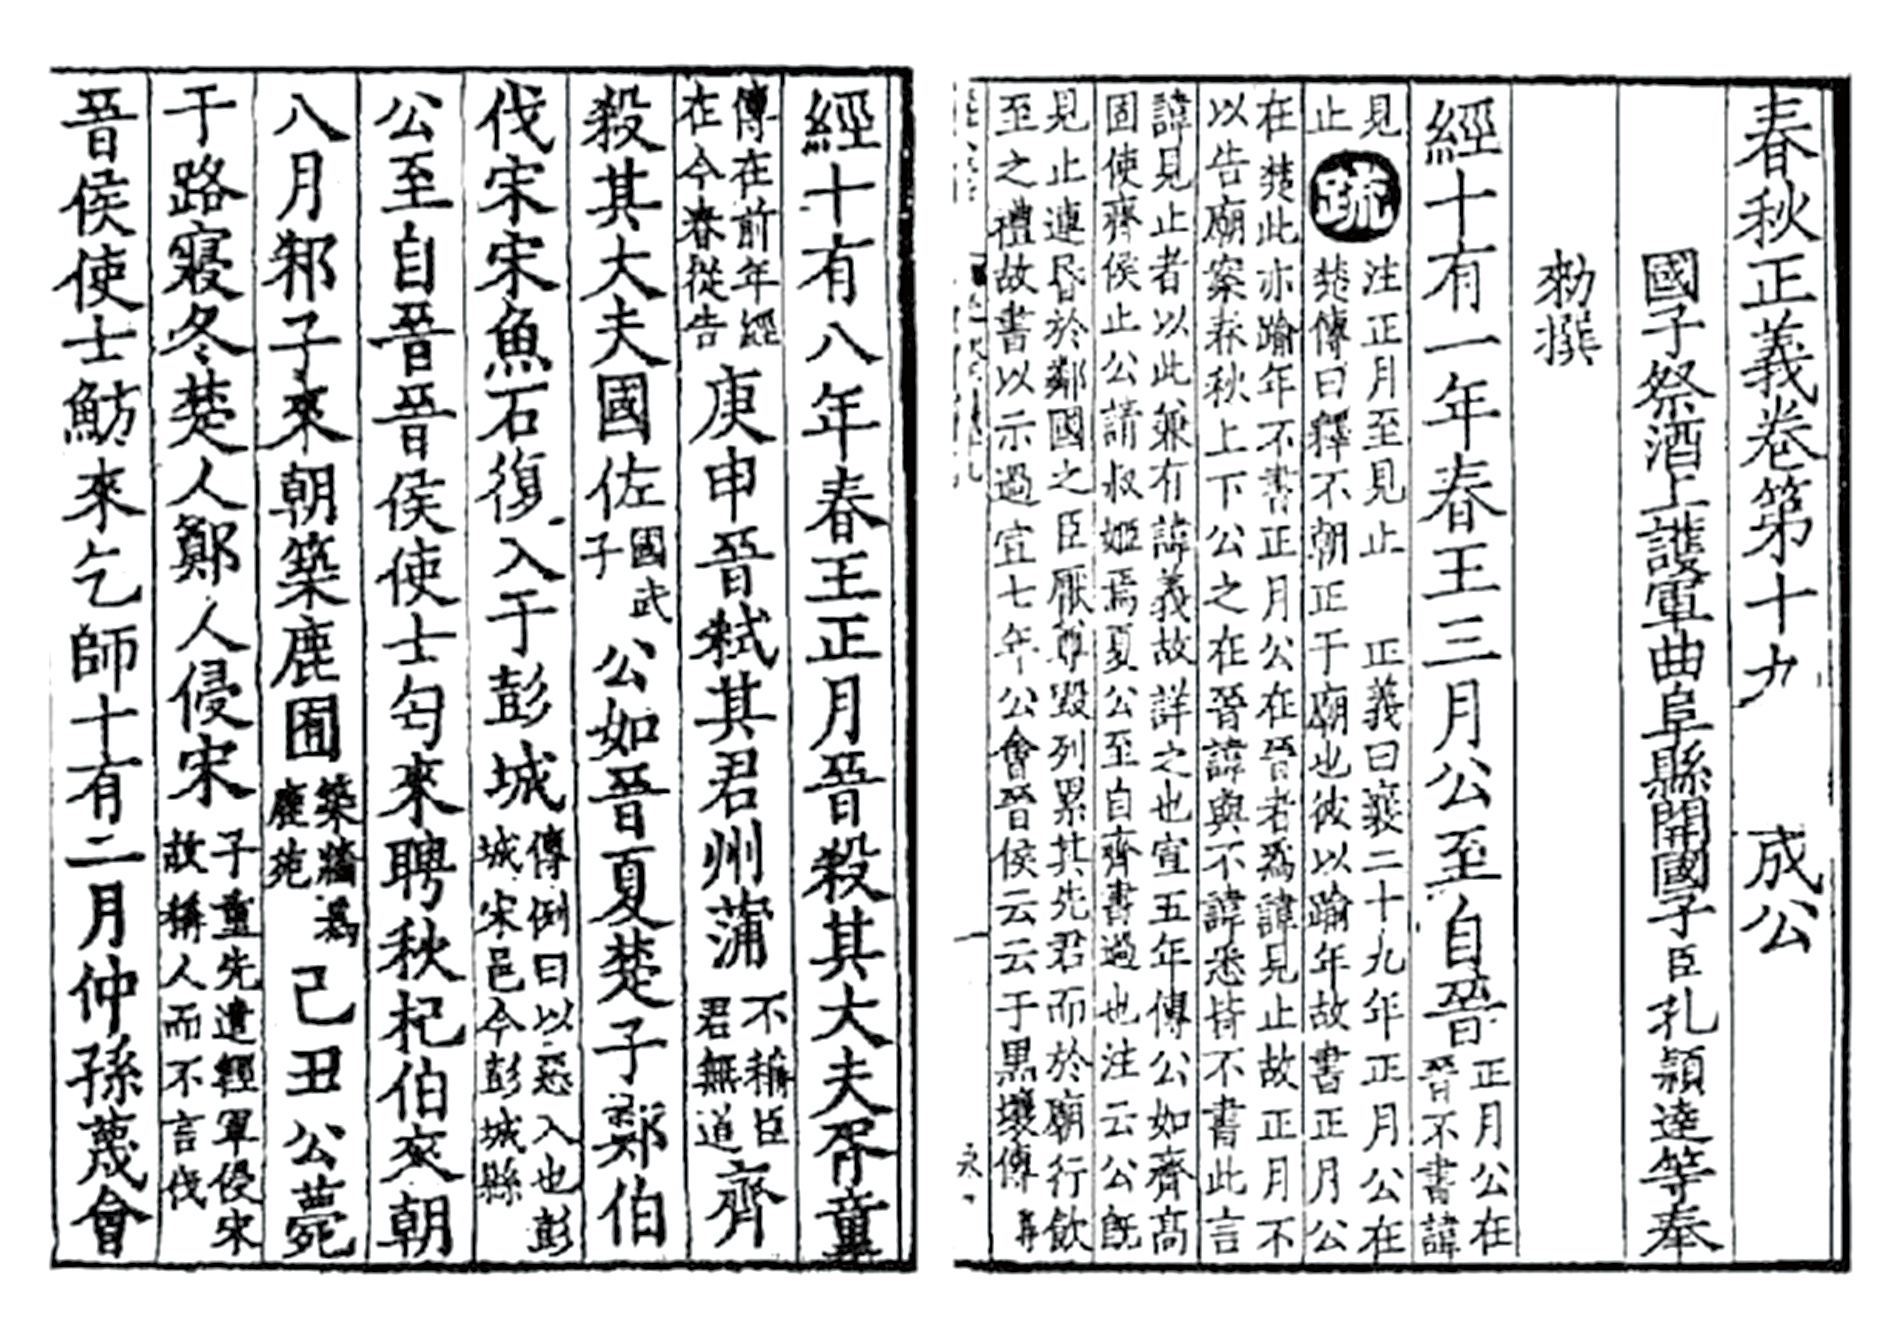 春秋正義卷第十九　成公
國子祭酒上護軍曲阜縣開國子臣孔穎達等奉
勑撰
經十有一年春王三月公至自晉正月公在晉不書諱
見止疏注正月至見止　正義曰襄二十九年正月公在楚傳曰釋不朝正于廟也彼以踰年故書正月公
在楚此亦踰年不書正月公在晉者爲諱見止故正月不
以告廟案春秋上下公之在晉諱與不諱悉皆不書此言
諱見止者以此兼有諱義故詳之也宣五年傳公如齊高
固使齊侯止公請叔姬焉夏公至自齊書過也注云公旣
見止連昏於鄰國之臣厭尊毀列累其先君而於廟行飲
至之禮故書以示過宣七年公會晉侯云云于黑壤傳
經十有八年春王正月晉殺其大夫胥童
傳在前年經在今春從告庚申晉弒其君州蒲不稱臣君無道齊
殺其大夫國佐國武子公如晉夏楚子鄭伯
伐宋宋魚石復入于彭城傳例曰以惡入也彭城宋邑今彭城縣
公至自晉晉侯使士匄來聘秋杞伯來朝
八月邾子來朝築鹿囿築牆爲鹿苑己丑公薨
于路寢冬楚人鄭人侵宋子重先遣輕軍侵宋故稱人而不言伐
晉侯使士魴來乞師十有二月仲孫蔑會